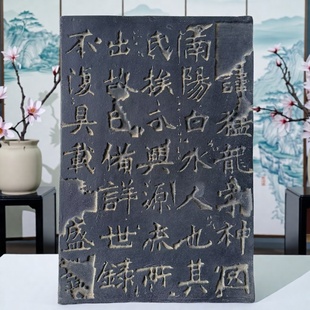 諱猛龍字神冏
南陽白水人也其
氏族分興源流所
出故已備詳世錄
不復具載盛